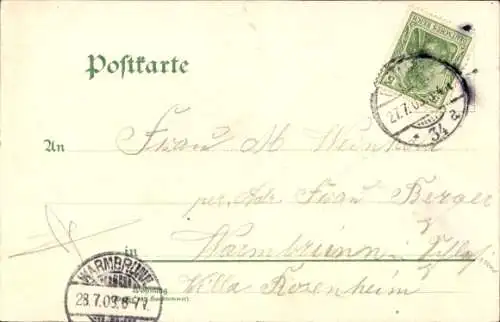 DEUTSCHES REICH
Postkarte
27.7.03.
* 34 a
An Frau M Weinhold
per Adr Frau Berger
in Warmbrunn i/Schles
Villa Rosenheim
WARMBRUNN
28.7.03. 6-7V.
Wohnung